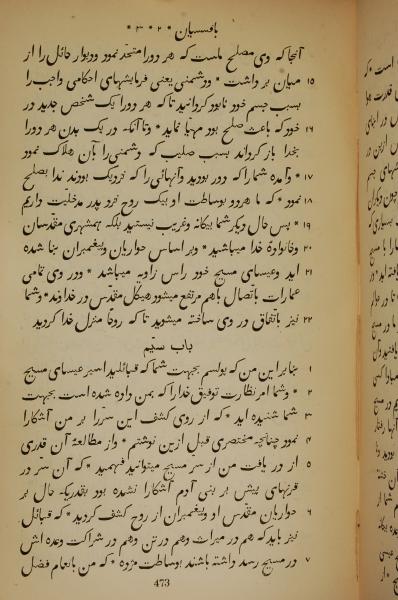 بافسسیان * ۲ * ۳ *
آنجا که وی مصلح ماست که هر دو را متحد نمود و دیوار حائل را از
۱۵ میان برداشت * و دشمنی یعنی فرمایشهای احکامی واجب را
بسبب جسم خود نابود گردانید تا که هر دو را یک شخص جدید در
۱۶ خود که باعث صلح بود مهیّا نماید * و تا آنکه در یک بدن هر دو را
بخدا باز گرداند بسبب صلیب که دشمنی را بآن هلاک نمود
۱۷ * و آمده شما را که دور بودید و آنهائی را که نزدیک بودند ندا بصلح
۱۸ نمود * که ما هر دو بوساطت او بیک روح نزد پدر مدخلیّت داریم
۱۹ * پس حال دیگر شما بیگانه و غریب نیستید بلکه همشهری مقدّسان
۲۰ و خانوادهٔ خدا میباشید * و بر اساس حواریان و پیغمبران بنا شده
۲۱ اید و عیسای مسیح خود راس زاویه میباشد * و در وی تمامی
عمارات باتّصال باهم مرتفع میشود هیکل مقدّس در خداوند * و شما
۲۲ نیز باتفاق در وی ساخته میشوید تا که روحاً منزل خدا گردید
باب سیّم
۱ بنابر این من که پولسم بجهت شما که قبائلید اسیر عیسای مسیح
۲ * و شما امر نظارت توفیق خدا را که بمن داده شده است بجهت
۳ شما شنیده اید * که از روی کشف این سرّ را بر من آشکارا
۴ نمود چنانچه مختصری قبل ازین نوشتم * و از مطالعهٔ آن قدری
۵ از در یافت من از سر مسیح میتوانید فهمید * که آن سر در
قرنهای پیش بر بنی آدم آشکارا نشده بود بقدریکه حال بر
۶ حواریان مقدّس او و پیغمبران از روح کشف گردید * که قبائل
نیز باید که هم در میراث و هم در تن و هم در شراکت وعده اش
۷ در مسیح رسد داشته باشند بوساطت مژده * که من بانعام فضل
473